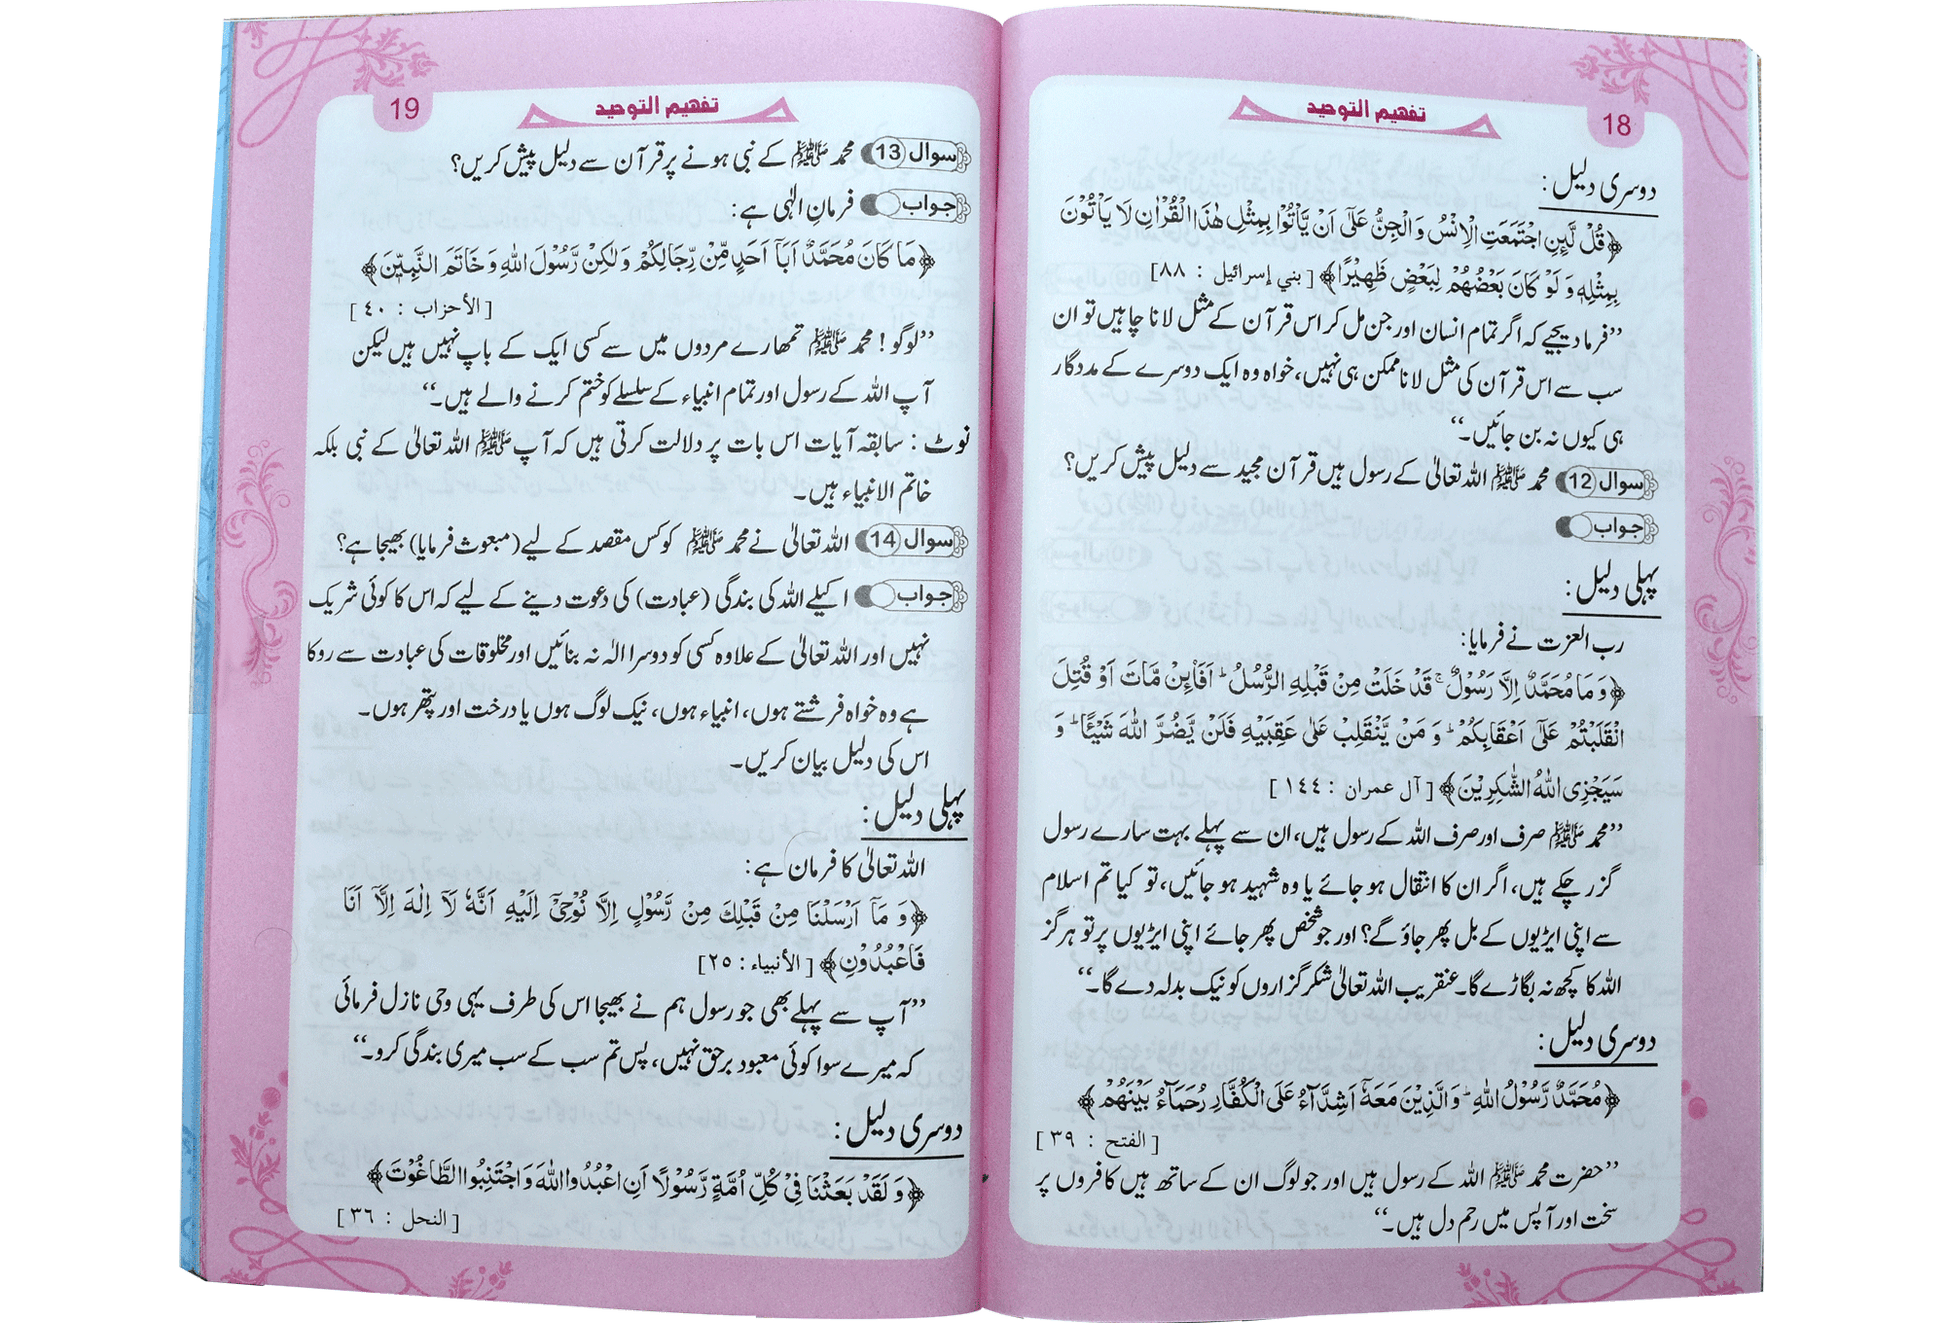 18
تفهيم التوحيد
دوسری دلیل :
﴿قُلْ لَّىِٕنِ اجْتَمَعَتِ الْاِنْسُ وَ الْجِنُّ عَلٰۤى اَنْ یَّاْتُوْا بِمِثْلِ هٰذَا الْقُرْاٰنِ لَا یَاْتُوْنَ
بِمِثْلِهٖ وَ لَوْ كَانَ بَعْضُهُمْ لِبَعْضٍ ظَهِیْرًا﴾ [ بني إسرائيل : ٨٨]
”فرما دیجیے کہ اگر تمام انسان اور جن مل کر اس قرآن کے مثل لانا چاہیں تو ان
سب سے اس قرآن کی مثل لانا ممکن ہی نہیں، خواہ وہ ایک دوسرے کے مددگار
ہی کیوں نہ بن جائیں۔“
سوال 12 محمد ﷺ اللہ تعالیٰ کے رسول ہیں قرآن مجید سے دلیل پیش کریں؟
جواب
پہلی دلیل :
رب العزت نے فرمایا:
﴿وَ مَا مُحَمَّدٌ اِلَّا رَسُوْلٌ ۚ قَدْ خَلَتْ مِنْ قَبْلِهِ الرُّسُلُ ؕ اَفَاۡىِٕنْ مَّاتَ اَوْ قُتِلَ
انْقَلَبْتُمْ عَلٰۤى اَعْقَابِكُمْ ؕ وَ مَنْ یَّنْقَلِبْ عَلٰى عَقِبَیْهِ فَلَنْ یَّضُرَّ اللّٰهَ شَیْـًٔا ؕ وَ
سَیَجْزِی اللّٰهُ الشّٰكِرِیْنَ﴾ [ آل عمران : ١٤٤ ]
”محمد ﷺ صرف اور صرف اللہ کے رسول ہیں، ان سے پہلے بہت سارے رسول
گزر چکے ہیں، اگر ان کا انتقال ہو جائے یا وہ شہید ہو جائیں، تو کیا تم اسلام
سے اپنی ایڑیوں کے بل پھر جاؤ گے؟ اور جو شخص پھر جائے اپنی ایڑیوں پر تو ہرگز
اللہ کا کچھ نہ بگاڑے گا۔ عنقریب اللہ تعالیٰ شکر گزاروں کو نیک بدلہ دے گا۔“
دوسری دلیل :
﴿مُحَمَّدٌ رَّسُوْلُ اللّٰهِ ؕ وَ الَّذِیْنَ مَعَهٗۤ اَشِدَّآءُ عَلَى الْكُفَّارِ رُحَمَآءُ بَیْنَهُمْ﴾
[ الفتح : ٣٩ ]
”حضرت محمد ﷺ اللہ کے رسول ہیں اور جو لوگ ان کے ساتھ ہیں کافروں پر
سخت اور آپس میں رحم دل ہیں۔“
19
تفهيم التوحيد
سوال 13 محمد ﷺ کے نبی ہونے پر قرآن سے دلیل پیش کریں؟
جواب فرمانِ الٰہی ہے:
﴿مَا كَانَ مُحَمَّدٌ اَبَاۤ اَحَدٍ مِّنْ رِّجَالِكُمْ وَ لٰكِنْ رَّسُوْلَ اللّٰهِ وَ خَاتَمَ النَّبِیّٖنَ﴾
[ الأحزاب : ٤٠ ]
”لوگو! محمد ﷺ تمھارے مردوں میں سے کسی ایک کے باپ نہیں ہیں لیکن
آپ اللہ کے رسول اور تمام انبیاء کے سلسلے کو ختم کرنے والے ہیں۔“
نوٹ : سابقہ آیات اس بات پر دلالت کرتی ہیں کہ آپ ﷺ اللہ تعالیٰ کے نبی بلکہ
خاتم الانبیاء ہیں۔
سوال 14 اللہ تعالیٰ نے محمد ﷺ کو کس مقصد کے لیے (مبعوث فرمایا) بھیجا ہے؟
جواب اکیلے اللہ کی بندگی (عبادت) کی دعوت دینے کے لیے کہ اس کا کوئی شریک
نہیں اور اللہ تعالیٰ کے علاوہ کسی کو دوسرا الٰہ نہ بنائیں اور مخلوقات کی عبادت سے روکا
ہے وہ خواہ فرشتے ہوں، انبیاء ہوں، نیک لوگ ہوں یا درخت اور پتھر ہوں۔
اس کی دلیل بیان کریں۔
پہلی دلیل :
اللہ تعالیٰ کا فرمان ہے:
﴿وَ مَاۤ اَرْسَلْنَا مِنْ قَبْلِكَ مِنْ رَّسُوْلٍ اِلَّا نُوْحِیْۤ اِلَیْهِ اَنَّهٗ لَاۤ اِلٰهَ اِلَّاۤ اَنَا
فَاعْبُدُوْنِ﴾ [ الأنبياء : ٢٥]
”آپ سے پہلے بھی جو رسول ہم نے بھیجا اس کی طرف یہی وحی نازل فرمائی
کہ میرے سوا کوئی معبود برحق نہیں، پس تم سب کے سب میری بندگی کرو۔“
دوسری دلیل :
﴿وَ لَقَدْ بَعَثْنَا فِیْ كُلِّ اُمَّةٍ رَّسُوْلًا اَنِ اعْبُدُوا اللّٰهَ وَ اجْتَنِبُوا الطَّاغُوْتَ﴾
[ النحل : ٣٦ ]